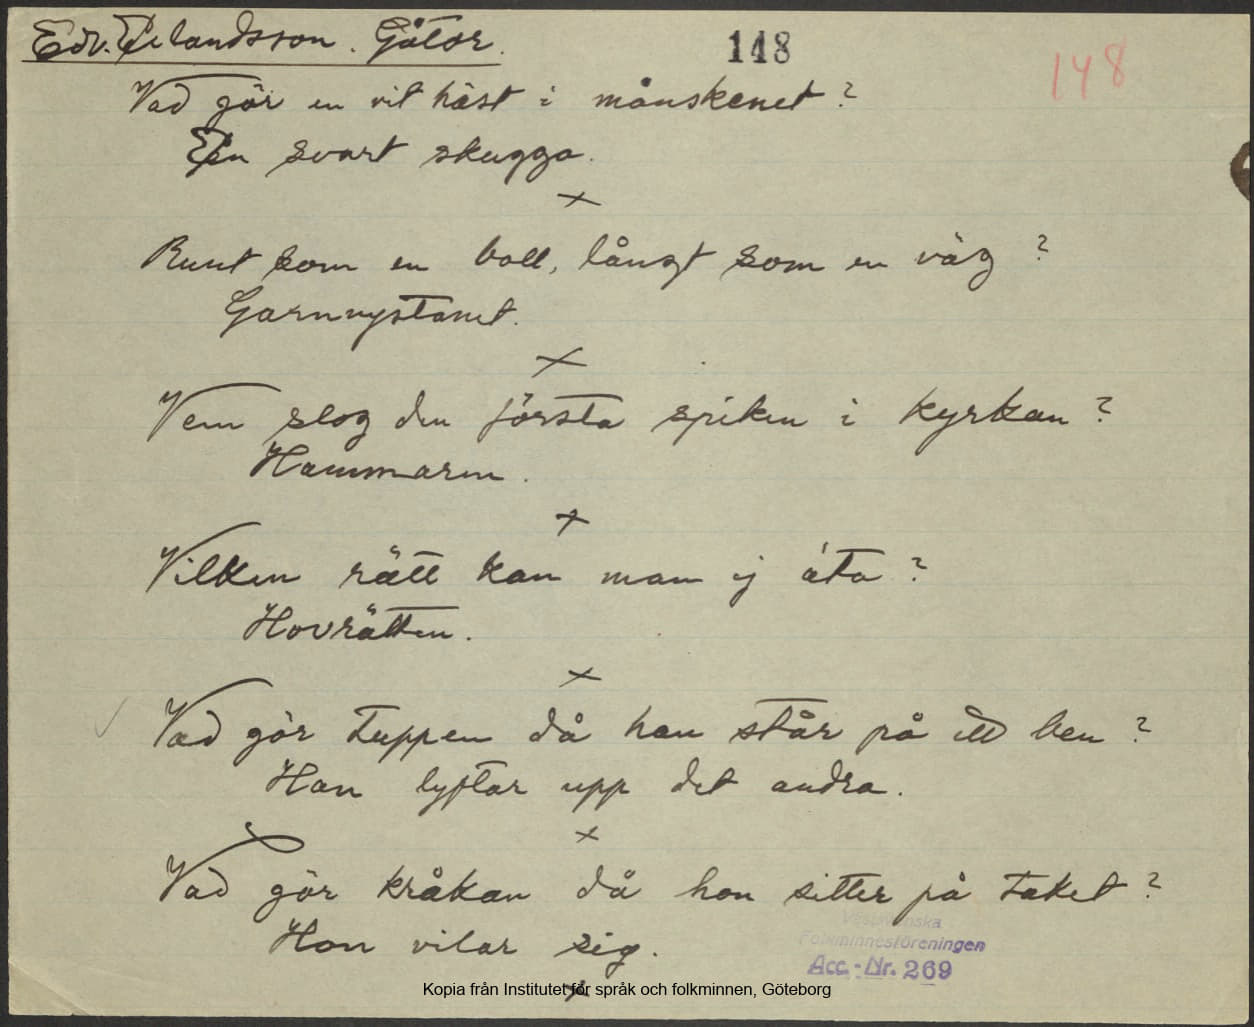 Edv. Erlandsson. Gåtor. 148 148
Vad gör en vit häst i månskenet?
En svart skugga.
Runt som en boll, långt som en väg?
Garnnystanet.
Vem slog den första spiken i kyrkan?
Hammaren.
Vilken rätt kan man ej äta?
Hovrätten.
Vad gör tuppen då han står på ett ben?
Han lyftar upp det andra.
Vad gör kråkan då hon sitter på taket?
Hon vilar sig.
Västsvenska
Folkminnesföreningen
Acc.-Nr. 269
Kopia från Institutet för språk och folkminnen, Göteborg